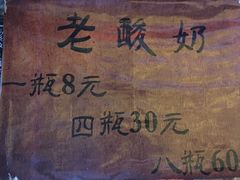 老酸奶
一瓶8元
四瓶30元
八瓶60